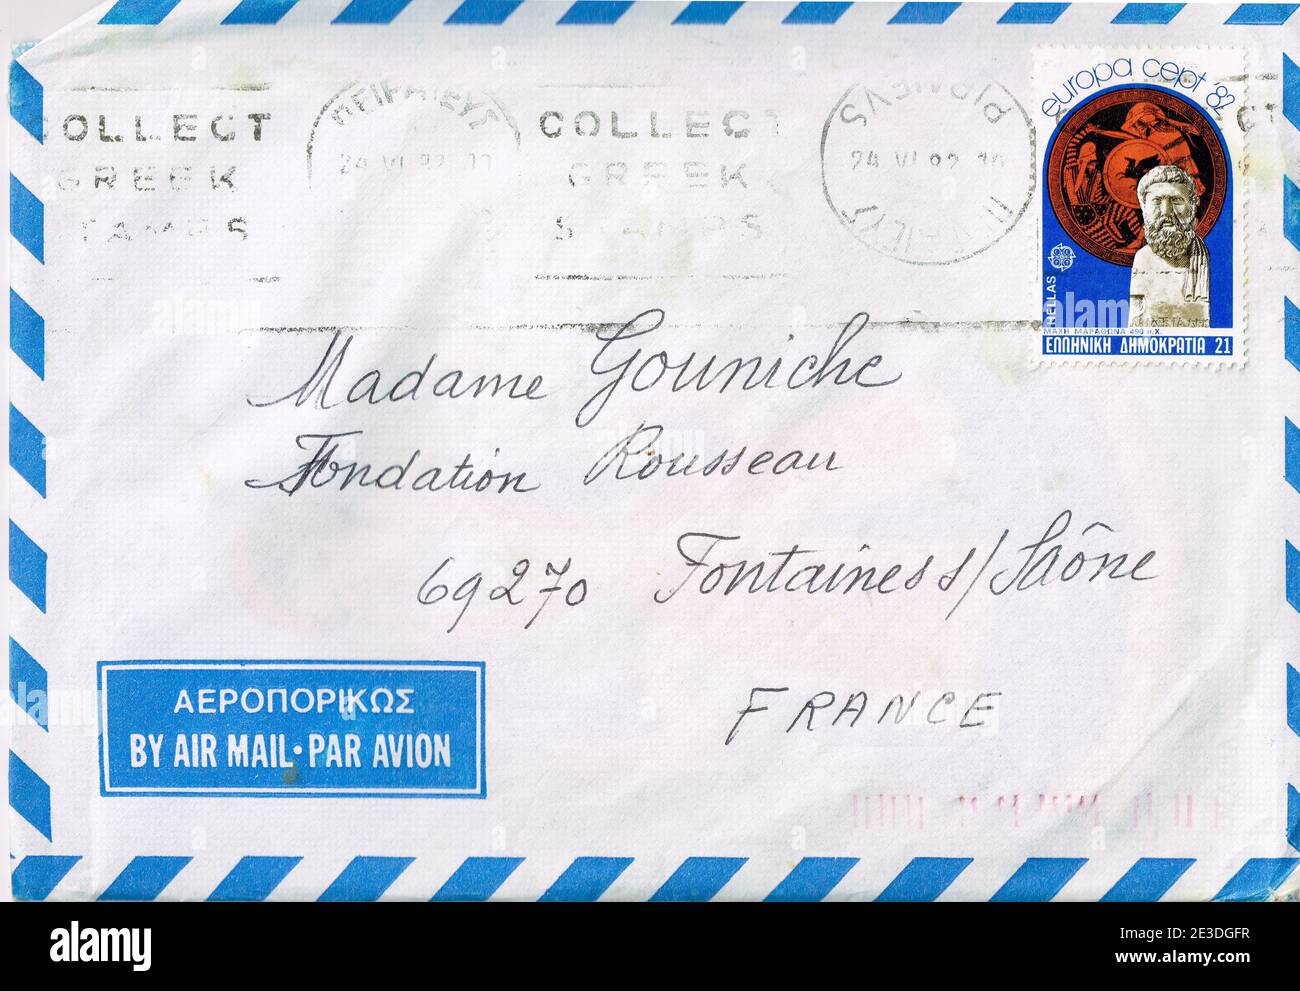 COLLECT
GREEK
STAMPS
ΠΕΙΡΑΙΕΥΣ
24 VI 82
COLLECT
GREEK
STAMPS
24 VI 82
europa cept '82
HELLAS
ΜΑΧΗ ΜΑΡΑΘΩΝΑ 490 π.Χ.
ΕΛΛΗΝΙΚΗ ΔΗΜΟΚΡΑΤΙΑ 21
Madame Gouniche
Fondation Rousseau
69270 Fontaines s/Saône
FRANCE
ΑΕΡΟΠΟΡΙΚΩΣ
BY AIR MAIL • PAR AVION
alamy
Image ID: 2E3DGFR
www.alamy.com